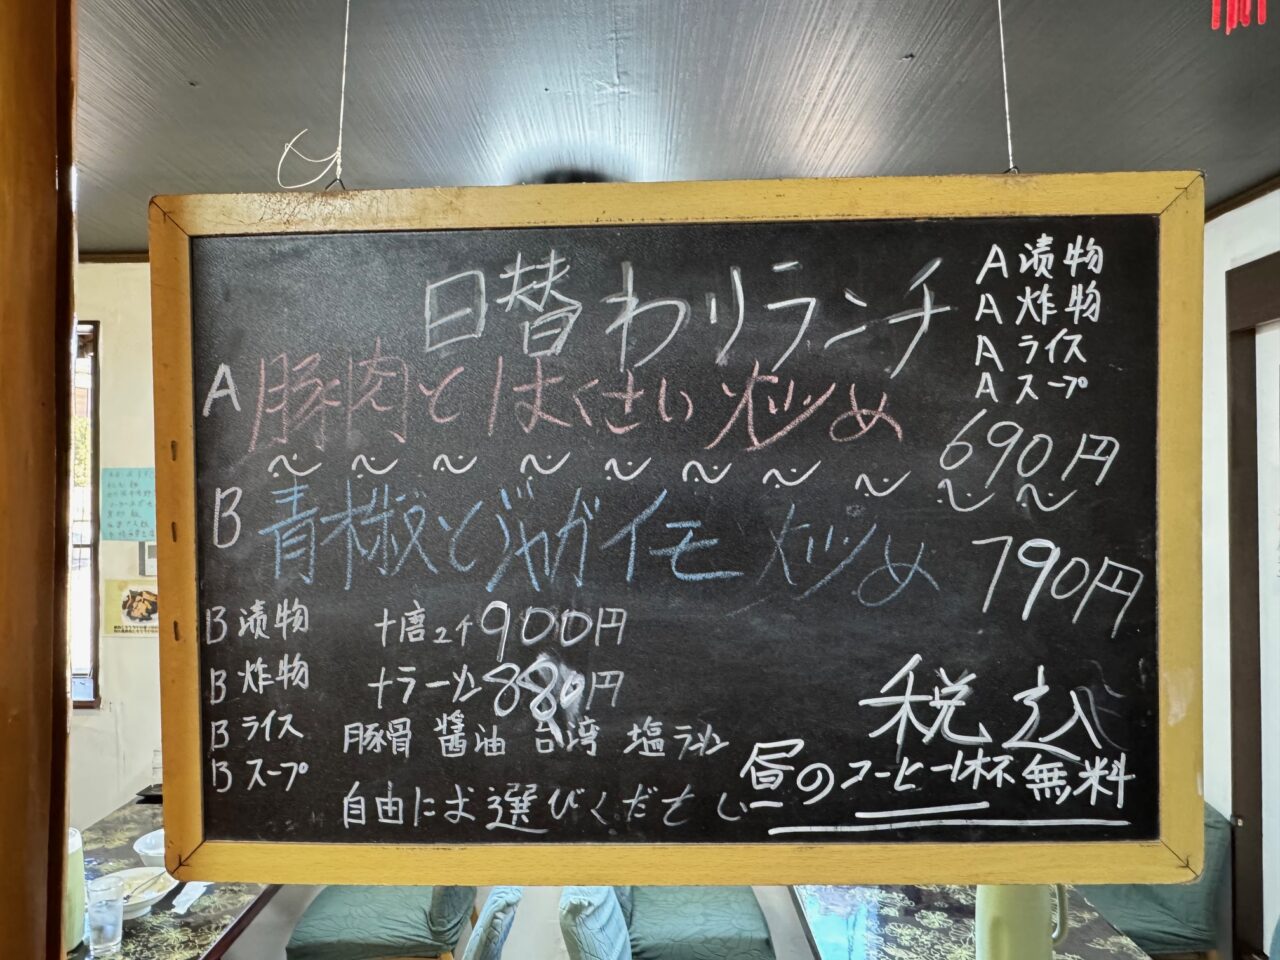 日替わりランチ
A 漬物
A 炸物
A ライス
A スープ
A 豚肉とはくさい炒め
690円
B 青椒とジャガイモ炒め
790円
B 漬物
B 炸物
B ライス
B スープ
十唐ユチ900円
十ラーメン880円
豚骨 醤油 台湾 塩ラーメン
自由にお選びくださし
税込
昼のコーヒー1杯無料